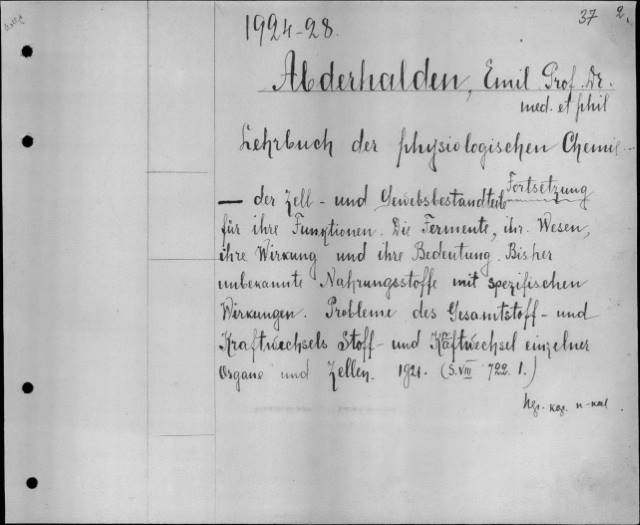 37 2.
1924-28.
Abderhalden, Emil Prof. Dr.
med. et phil
Lehrbuch der physiologischen Chemie
Fortsetzung
— der Zell- und Gewebsbestandteile
für ihre Funktionen. Die Fermente, ihr Wesen,
ihre Wirkung und ihre Bedeutung. Bisher
unbekannte Nahrungsstoffe mit spezifischen
Wirkungen. Probleme des Gesamtstoff- und
Kraftwechsels Stoff- und Kraftwechsel einzelner
Organe und Zellen. 1924. (S. VIII 722. 1.)